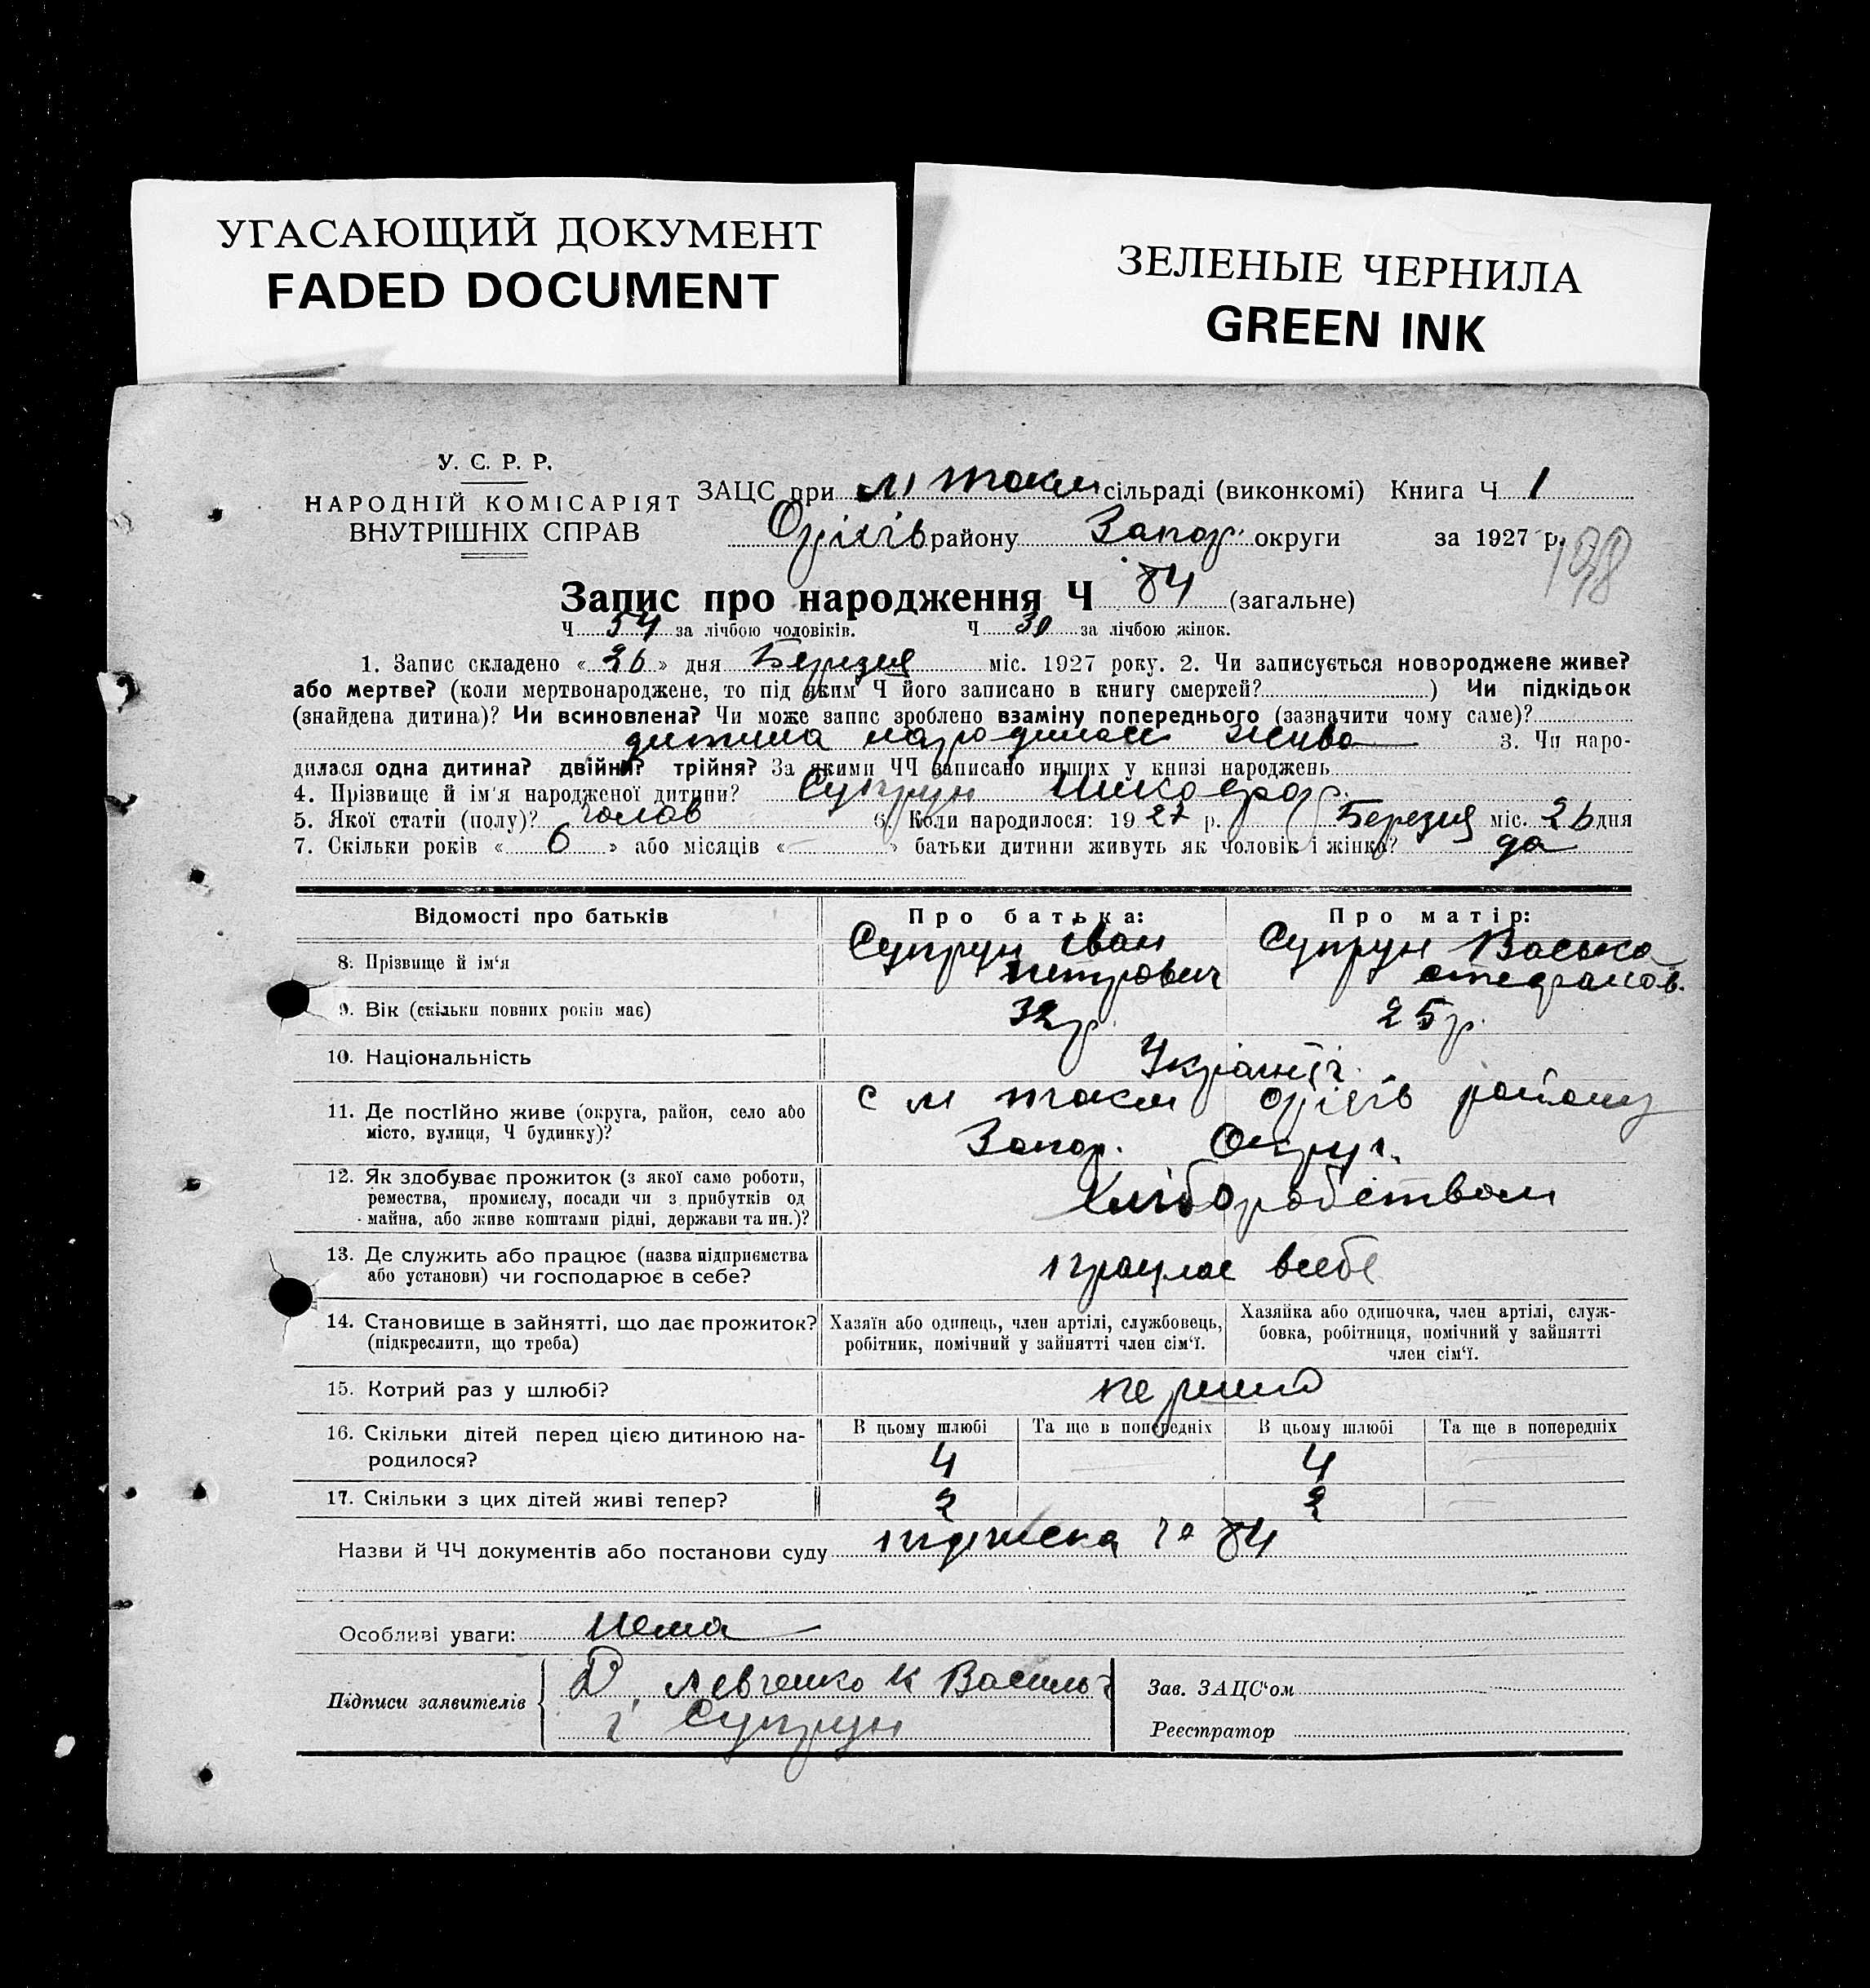 УГАСАЮЩИЙ ДОКУМЕНТ
FADED DOCUMENT
ЗЕЛЕНЫЕ ЧЕРНИЛА
GREEN INK
У. С. Р. Р.
НАРОДНІЙ КОМІСАРІЯТ
ВНУТРІШНІХ СПРАВ
ЗАЦС при М Токм сільраді (виконкомі) Книга Ч 1
Оріхів району Запор. округи за 1927 р.
198
Запис про народження Ч 84 (загальне)
Ч 54 за лічбою чоловіків. Ч 30 за лічбою жінок.
1. Запис складено « 26 » дня Березня міс. 1927 року. 2. Чи записується новороджене живе?
або мертве? (коли мертвонароджене, то під яким Ч його записано в книгу смертей? ) Чи підкідьок
(знайдена дитина)? Чи всиновлена? Чи може запис зроблено взаміну попереднього (зазначити чому саме)?
дитина народилась жива 3. Чи наро-
дилася одна дитина? двійня? трійня? За якими ЧЧ записано инших у книзі народжень
4. Прізвище й ім'я народженої дитини? Супрун
5. Якої стати (полу)? чолов 6. Коли народилося: 1927 р. Березня міс. 26 дня
7. Скільки років « 6 » або місяців « - » батьки дитини живуть як чоловік і жінка? да
Відомості про батьків Про батька: Про матір:
8. Прізвище й ім'я Супрун Іван Петрович Супрун Васька
9. Вік (скільки повних років має) 32 р. 25 р.
10. Національність Українці
11. Де постійно живе (округа, район, село або С М Токм Оріхів району
місто, вулиця, Ч будинку)? Запор. Округ.
12. Як здобуває прожиток (з якої саме роботи,
ремества, промислу, посади чи з прибутків од Хліборобством
майна, або живе коштами рідні, держави та ин.)?
13. Де служить або працює (назва підприємства
або установи) чи господарює в себе? працює всебе
14. Становище в зайнятті, що дає прожиток? Хазяїн або одинець, член артілі, службовець, Хазяйка або одиночка, член артілі, служ-
(підкреслити, що треба) робітник, помічний у зайнятті член сім'ї. бовка, робітниця, помічний у зайнятті
член сім'ї.
15. Котрий раз у шлюбі? перший
16. Скільки дітей перед цією дитиною на- В цьому шлюбі Та ще в попередніх В цьому шлюбі Та ще в попередніх
родилося? 4 4
17. Скільки з цих дітей живі тепер? 2 2
Назви й ЧЧ документів або постанови суду підписка 84
Особливі уваги: Нема
Підписи заявителів Левченко К
і Супрун
Зав. ЗАЦС'ом
Реєстратор